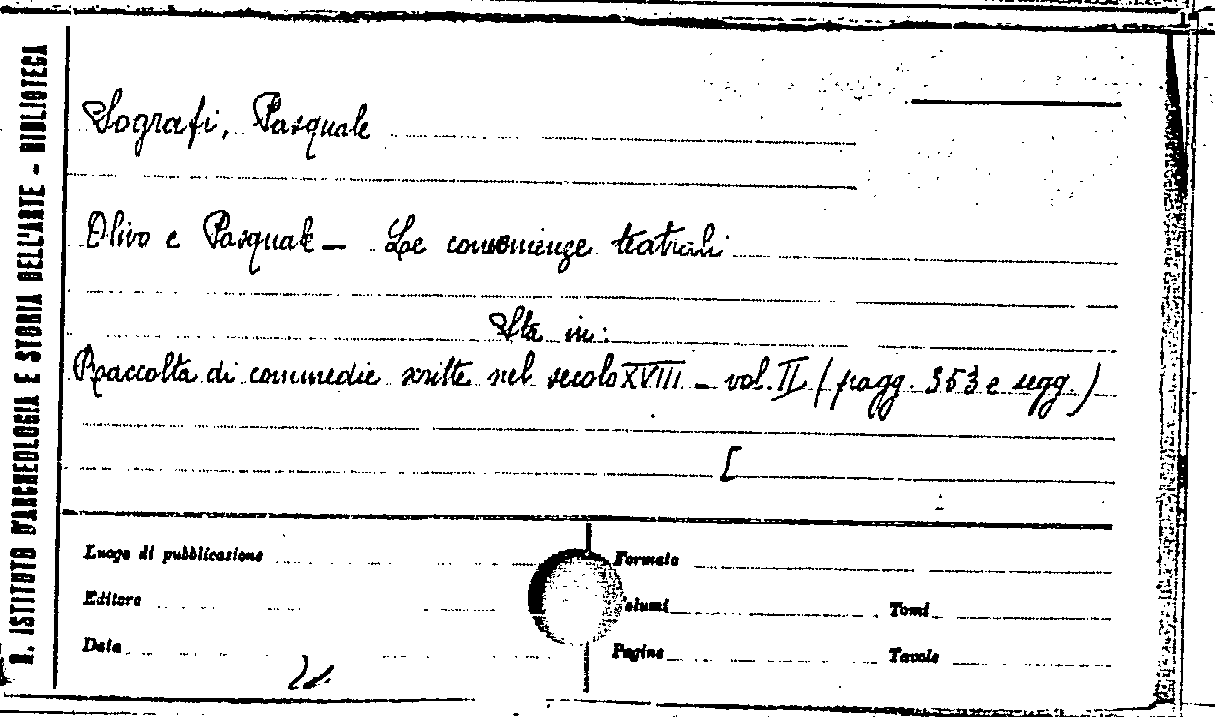 R. ISTITUTO D'ARCHEOLOGIA E STORIA DELL'ARTE - BIBLIOTECA
Sografi, Pasquale
Olivo e Pasquale - Le convenienze teatrali
Sta in:
Raccolta di commedie scritte nel secolo XVIII - vol. II (pagg. 353 e segg.)
[
Luogo di pubblicazione
Formato
Editore
olumi
Tomi
Data
Pagine
Tavole